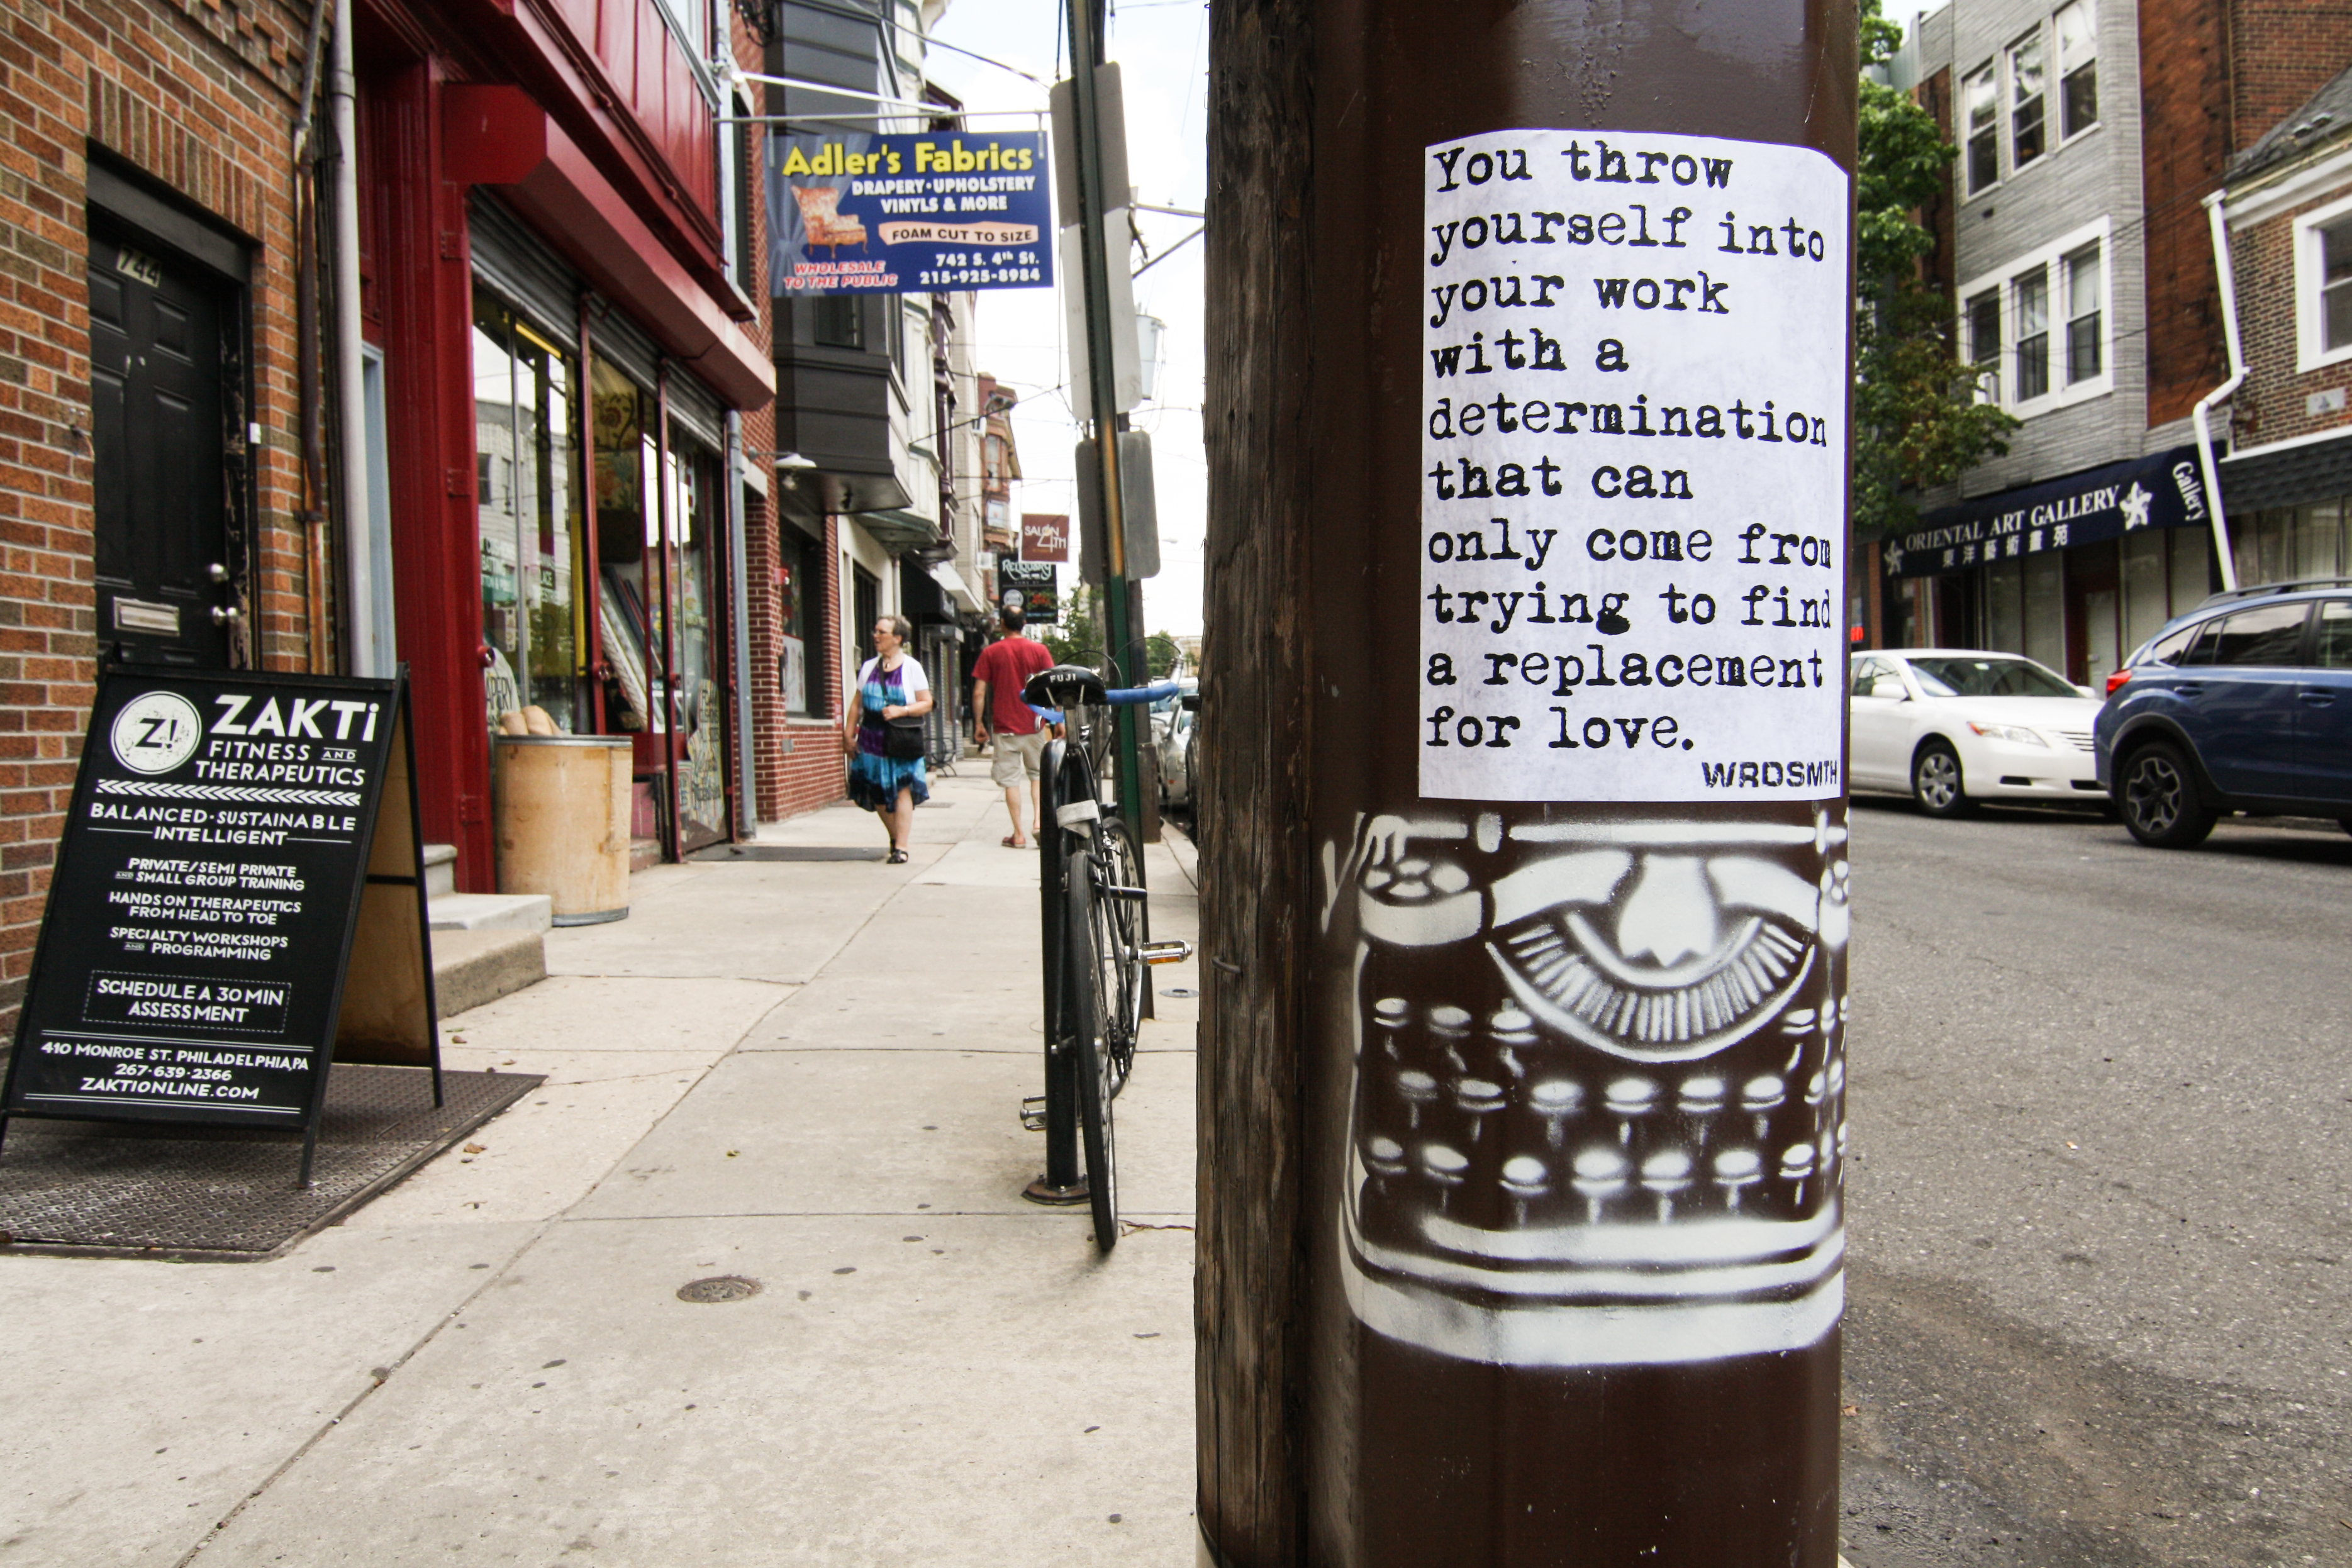 744
ZAKTi
FITNESS AND
THERAPEUTICS
BALANCED·SUSTAINABLE
INTELLIGENT
PRIVATE/SEMI PRIVATE
AND SMALL GROUP TRAINING
HANDS ON THERAPEUTICS
FROM HEAD TO TOE
SPECIALTY WORKSHOPS
AND PROGRAMMING
SCHEDULE A 30 MIN
ASSESSMENT
410 MONROE ST. PHILADELPHIA,PA
267·639·2366
ZAKTIONLINE.COM
Z!
Adler's Fabrics
DRAPERY·UPHOLSTERY
VINYLS & MORE
FOAM CUT TO SIZE
WHOLESALE
TO THE PUBLIC
742 S. 4th St.
215-925-8984
SALON
4TH
FUJI
You throw
yourself into
your work
with a
determination
that can
only come from
trying to find
a replacement
for love.
WRDSMTH
ORIENTAL ART GALLERY
東洋藝術畫苑
Gallery